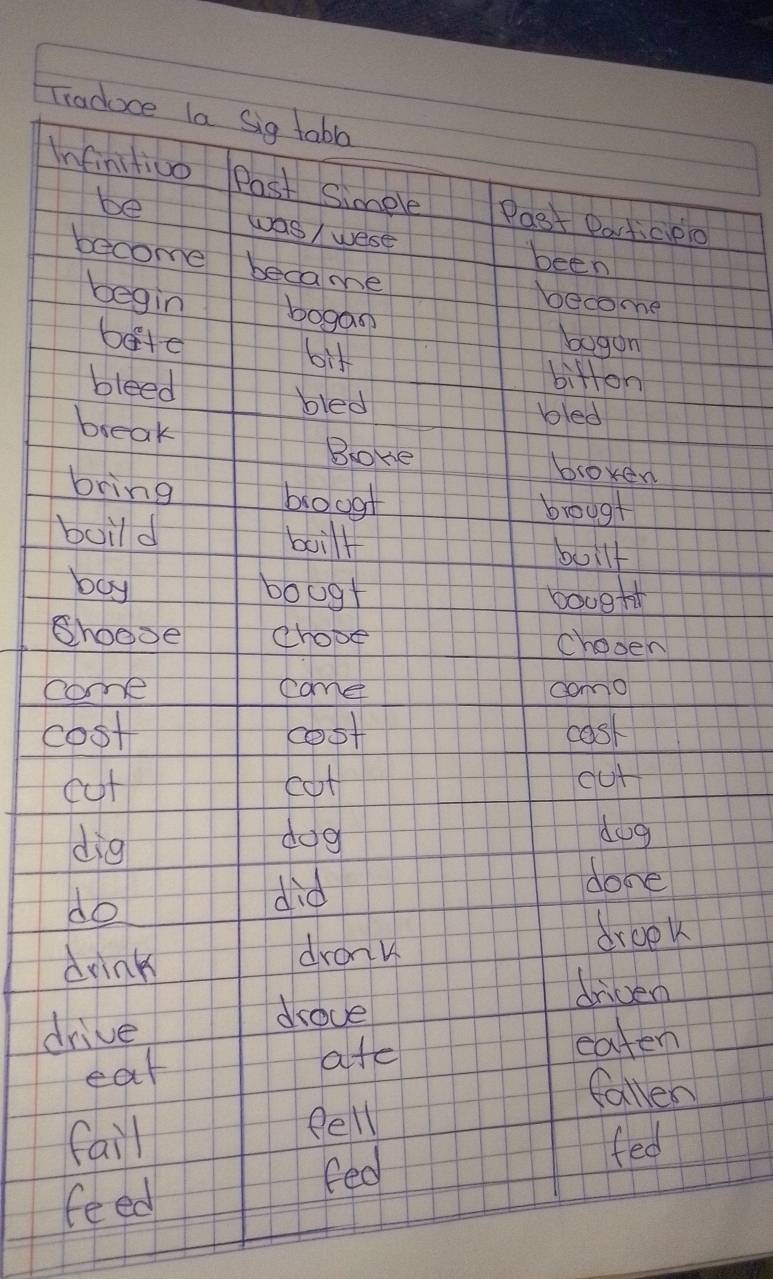 Traduce la Sig tabla
Infinitivo Past Simple Past Participio
be was/wese been
become became become
begin bogan bogon
beite bit bitton
bleed bled bled
break Broke broken
bring brougt brougt
build built built
buy bougt bought
Choose chose Chosen
come came como
cost cost cost
cut cut cut
dig dog dug
do did done
drink dronk
drive drove driven
eat ate eaten
fail fell fallen
feed fed fed